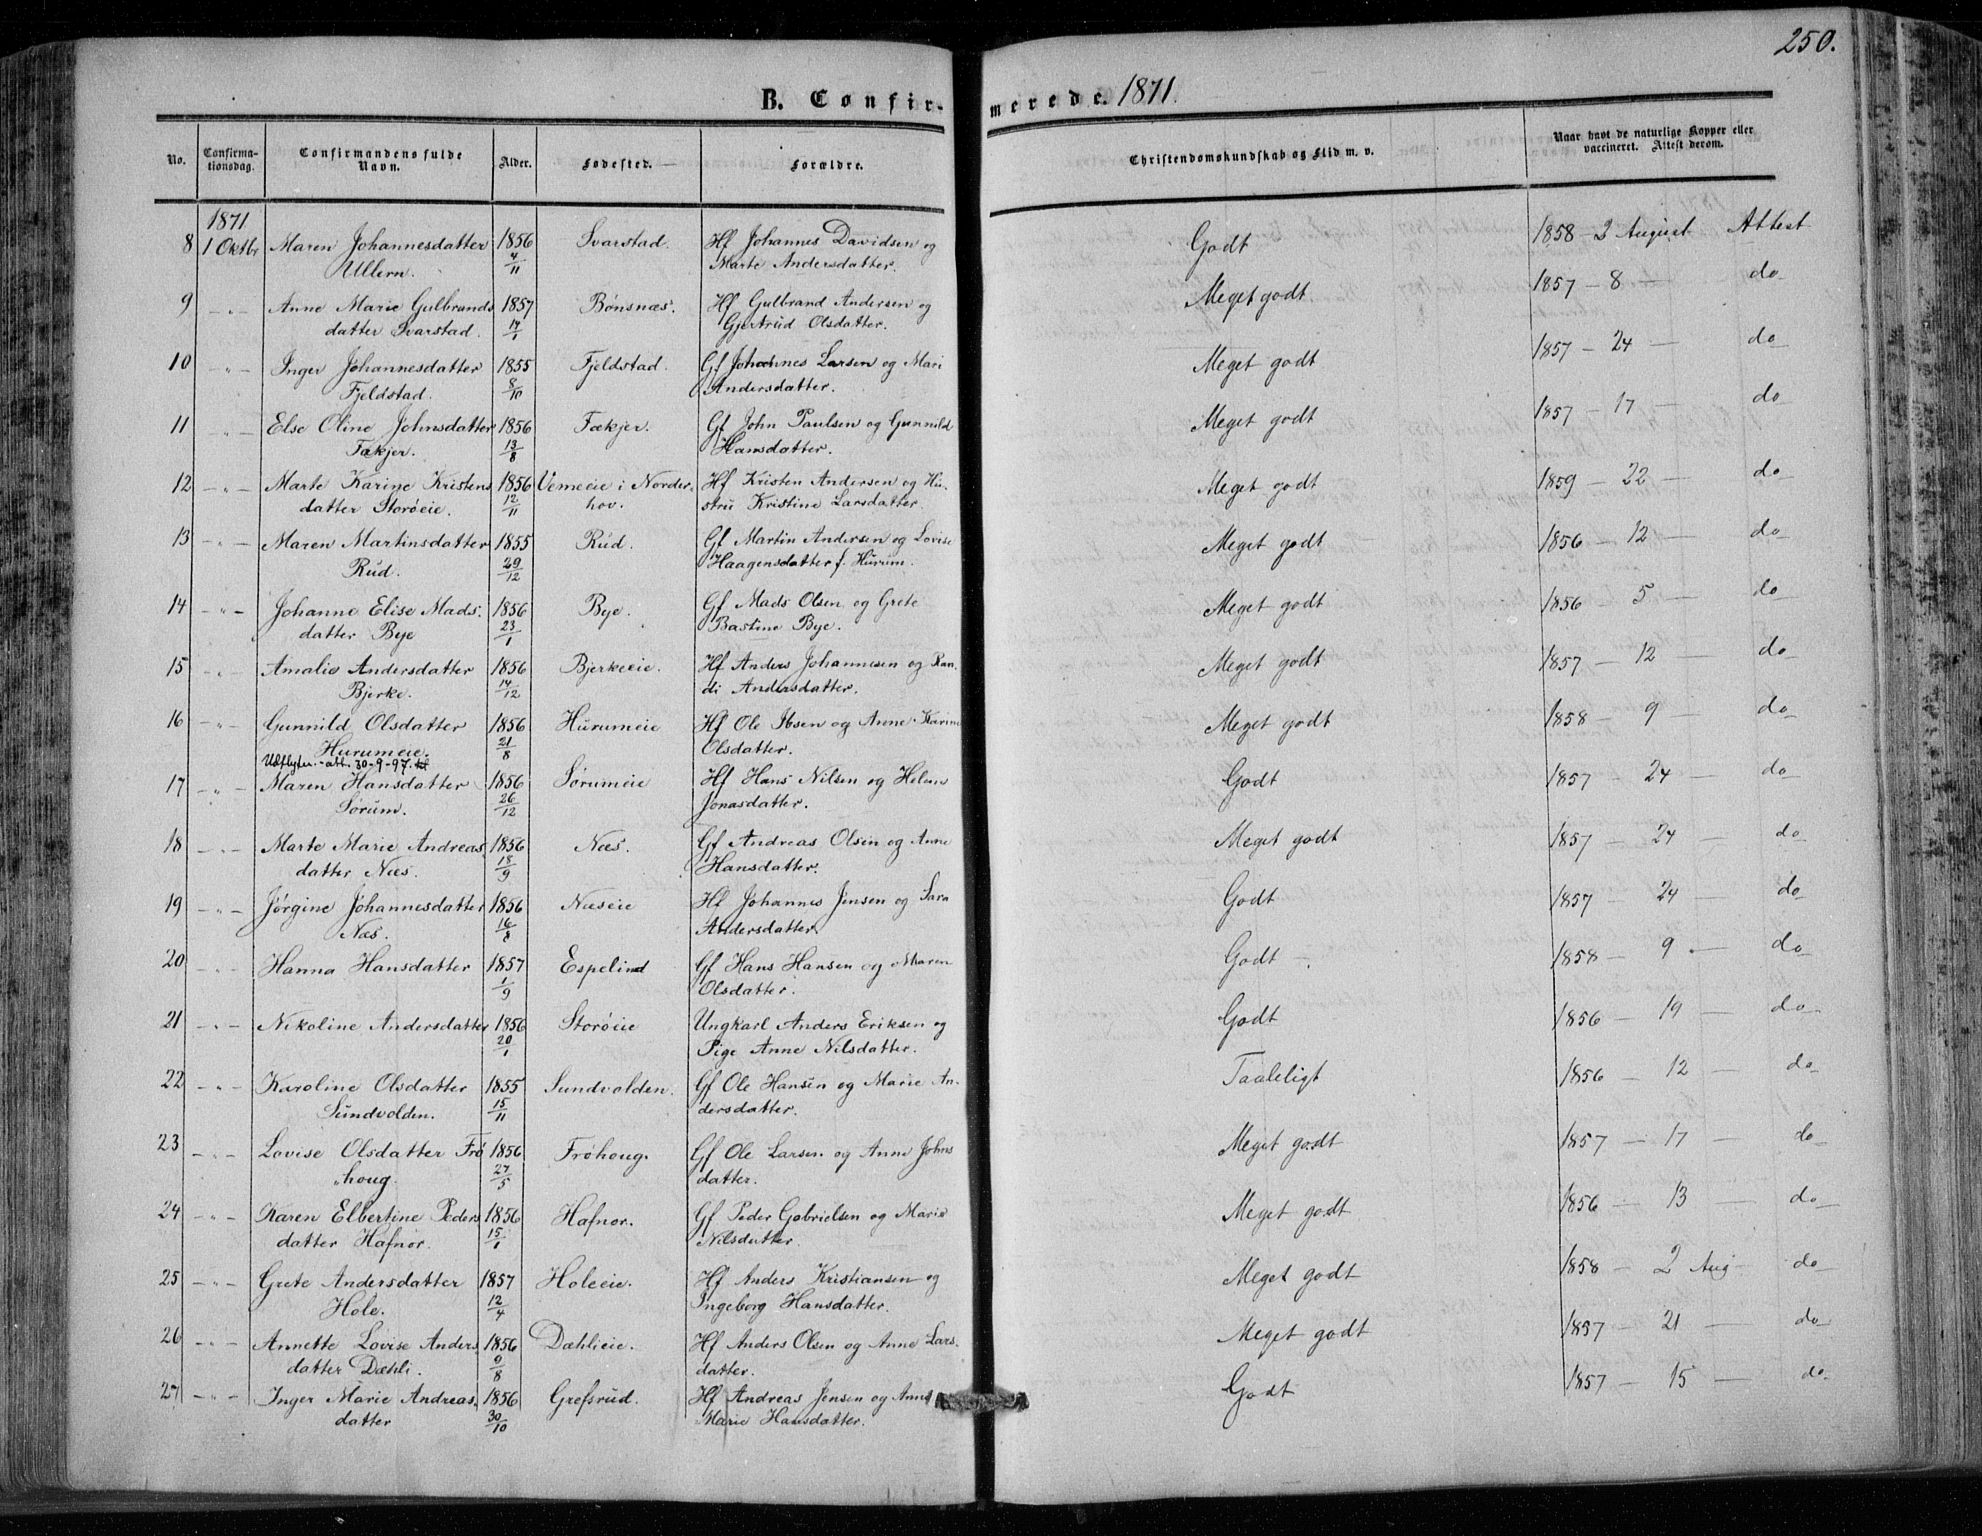 250.
B. Confirmerede. 1871.
No. Confirmationsdag. Confirmandens fulde Navn. Alder. Fødested. Forældre. Christendomskundskab og Flid m. v. Naar havt de naturlige Kopper eller vaccineret. Attest derom.
1871
8 1 Oktbr Maren Johannesdatter 1856 Svarstad. Hf Johannes Davidsen og Godt 1858 - 2 August Attest
Ullern. 4/11 Marte Andersdatter.
9 - " - Anne Marie Gulbrands 1857 Bønsnæs. Hf Gulbrand Andersen og Meget godt. 1857 - 8 — do
datter Svarstad. Gjertrud Olsdatter.
10 - " - Inger Johannesdatter 1855 Fjeldstad. Gf Johannes Larsen og Mari Meget godt 1857 - 24 — do
Fjeldstad. 8/10 Andersdatter.
11 - " - Else Oline Johnsdatter 1856 Fækjer. Gf John Paulsen og Gunnild Meget godt 1857 - 17 — do
Fækjer. 13/8 Hansdatter.
12 - " - Marte Karine Kristens 1856 Vemeeie i Norder Hf Kristen Andersen og Hu- Meget godt 1859 - 22 — do
datter Storøeie. 12/11 hov. stru Kristine Larsdatter.
13 - " - Maren Martinsdatter 1855 Rud. Gf Martin Andersen og Lovise Meget godt 1856 - 12 — do
Rud. 29/12 Haagensdatter f. Hurum.
14 - " - Johanne Elise Mads- 1856 Bye. Gf Mads Olsen og Grete Meget godt 1856 - 5 — do
datter Bye 23/1 Bastine Bye.
15 - " - Amalie Andersdatter 1856 Bjerkeeie. Hf Anders Johannesen og Ran- Meget godt 1857 - 12 — do
Bjerke. 14/12 di Andersdatter.
16 - " - Gunnild Olsdatter 1856 Hurumeie Hf Ole Ibsen og Anne Karine Meget godt 1858 - 9 — do
Hurumeie. 21/8 Olsdatter.
Udflytn.-att. 30-9-97.
17 - " - Maren Hansdatter 1856 Sørumeie Hf Hans Nilsen og Helene Godt 1857 - 24 — do
Sørum. 26/12 Jonasdatter.
18 - " - Marte Marie Andreas 1856 Næs. Gf Andreas Olsen og Anne Meget godt 1857 - 24 — do
datter Næs. 18/9 Hansdatter.
19 - " - Jørgine Johannesdatter 1856 Næseie Hf Johannes Jensen og Sara Godt 1857 - 24 — do
Næs. 16/8 Andersdatter.
20 - " - Hanna Hansdatter 1857 Espelind Gf Hans Hansen og Maren Godt - 1858 - 9 — do
1/9 Olsdatter.
21 - " - Nikoline Andersdatter 1856 Storøeie Ungkarl Anders Eriksen og Godt 1856 - 19 — do
20/1 Pige Anne Nilsdatter.
22 - " - Karoline Olsdatter 1855 Sundvolden. Gf Ole Hansen og Marie An- Taaleligt 1856 - 12 — do
Sundvolden. 15/11 dersdatter.
23 - " - Lovise Olsdatter Frø 1856 Frøhoug. Gf Ole Larsen og Anne Johns Meget godt 1857 - 17 — do
houg. 27/5 datter.
24 - " - Karen Elbertine Peders 1856 Hafnor. Gf Peder Gabrielsen og Marie Meget godt 1856 - 13 — do
datter Hafnor. 15/1 Nilsdatter.
25 - " - Grete Andersdatter 1857 Holeeie. Hf Anders Kristiansen og Meget godt 1858 - 2 Aug - do
Hole. 12/4 Ingeborg Hansdatter.
26 - " - Annette Lovise Anders 1856 Dæhlieie. Hf Anders Olsen og Anne Lars- Meget godt 1857 - 21 — do
datter Dæhli. 9/8 datter.
27 - " - Inger Marie Andreas- 1856 Grefsrud. Hf Andreas Jensen og Anne Godt 1857 - 15 — do
datter 30/10 Marie Hansdatter.